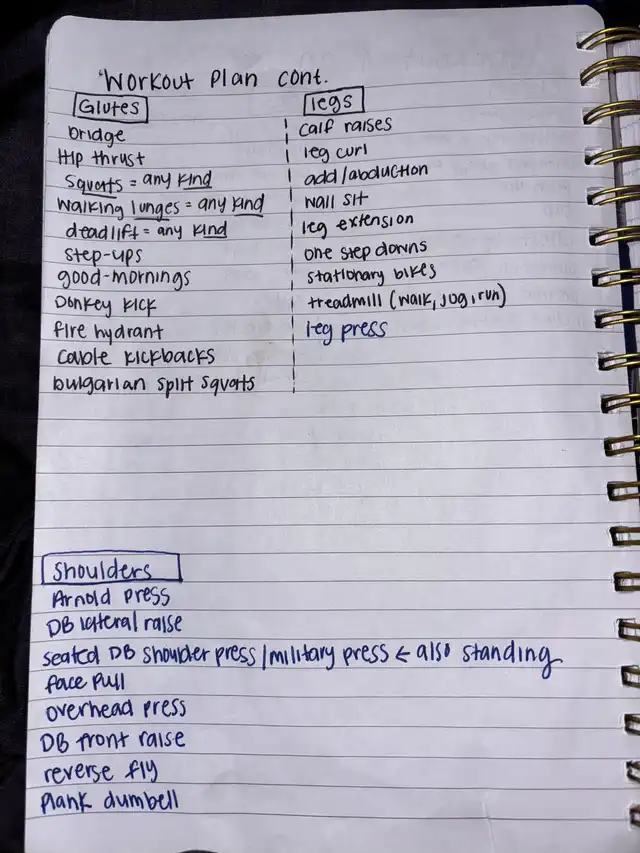 Workout Plan cont.
Glutes
bridge
Hip thrust
Squats = any kind
walking lunges = any kind
deadlift = any kind
step-ups
good-mornings
Donkey kick
fire hydrant
cable kickbacks
bulgarian split squats
legs
calf raises
leg curl
add/abduction
wall sit
leg extension
one step downs
stationary bikes
treadmill (walk, jog, run)
leg press
Shoulders
Arnold press
DB lateral raise
seated DB shoulder press/military press ← also standing
face pull
overhead press
DB front raise
reverse fly
Plank dumbell